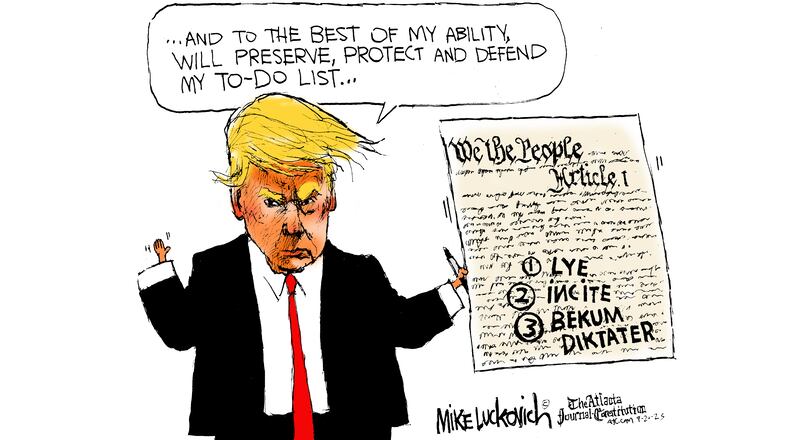 ...AND TO THE BEST OF MY ABILITY,
WILL PRESERVE, PROTECT AND DEFEND
MY TO-DO LIST...
We the People
Article 1
① LYE
② INCITE
③ BEKUM
DIKTATER
MIKE LUCKOVICH ©
The Atlanta
Journal-Constitution
ajc.com 9-20-25